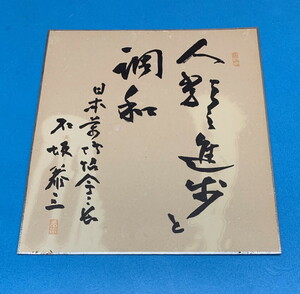 人類の進歩と
調和
日本万博協会会長
石坂泰三